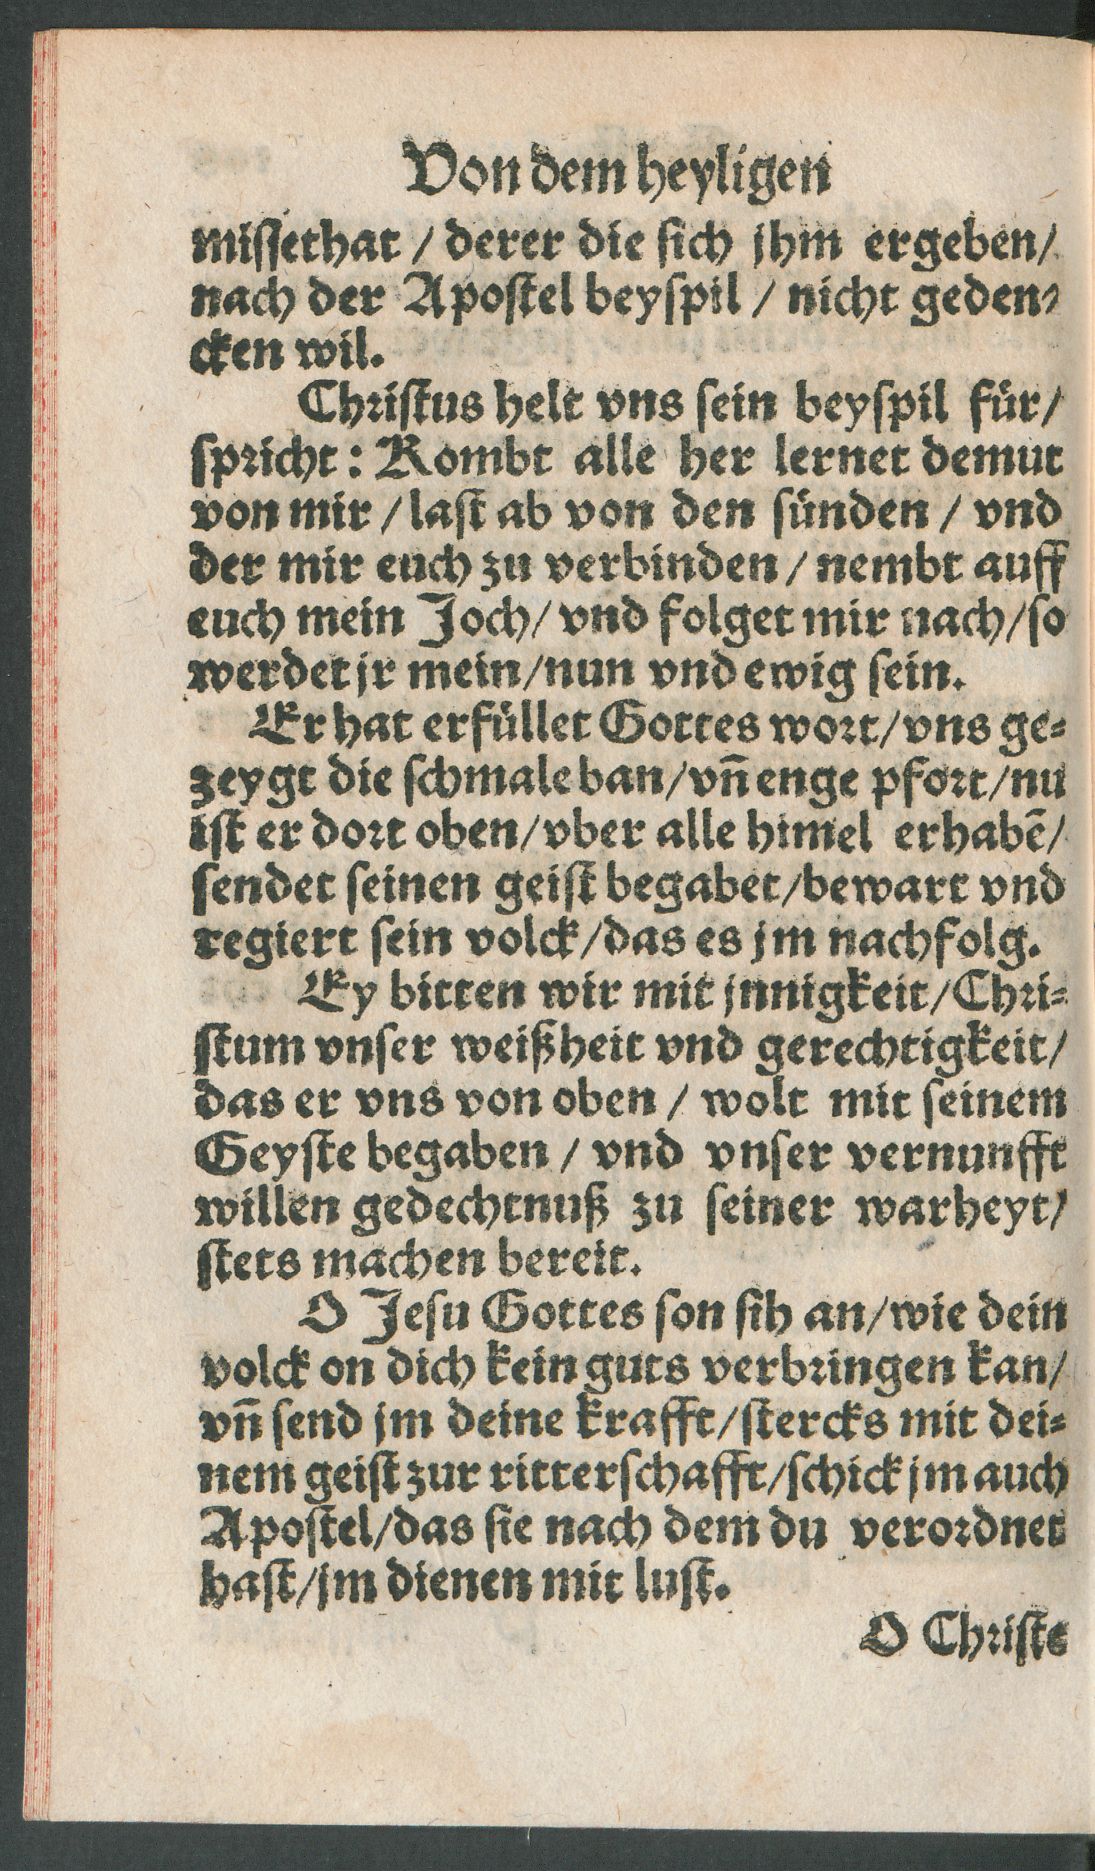 Von dem heyligen
missethat / derer die sich jhm ergeben/
nach der Apostel beyspil / nicht geden-
cken wil.
Christus helt vns sein beyspil für/
spricht: Kombt alle her lernet demut
von mir / last ab von den sünden / vnd
der mir euch zu verbinden / nembt auff
euch mein Joch/ vnd folget mir nach/so
werdet jr mein/nun vnd ewig sein.
Er hat erfüllet Gottes wort/vns ge-
zeygt die schmale ban/vn̄ enge pfort/nu
ist er dort oben/vber alle himel erhabē/
sendet seinen geist begabet/bewart vnd
regiert sein volck/das es jm nachfolg.
Ey bitten wir mit jnnigkeit/Chri-
stum vnser weißheit vnd gerechtigkeit/
das er vns von oben / wolt mit seinem
Geyste begaben / vnd vnser vernunfft
willen gedechtnuß zu seiner warheyt/
stets machen bereit.
O Jesu Gottes son sih an/wie dein
volck on dich kein guts verbringen kan/
vn̄ send jm deine krafft/stercks mit dei-
nem geist zur ritterschafft/schick jm auch
Apostel/das sie nach dem du verordnet
hast/jm dienen mit lust.
O Christe